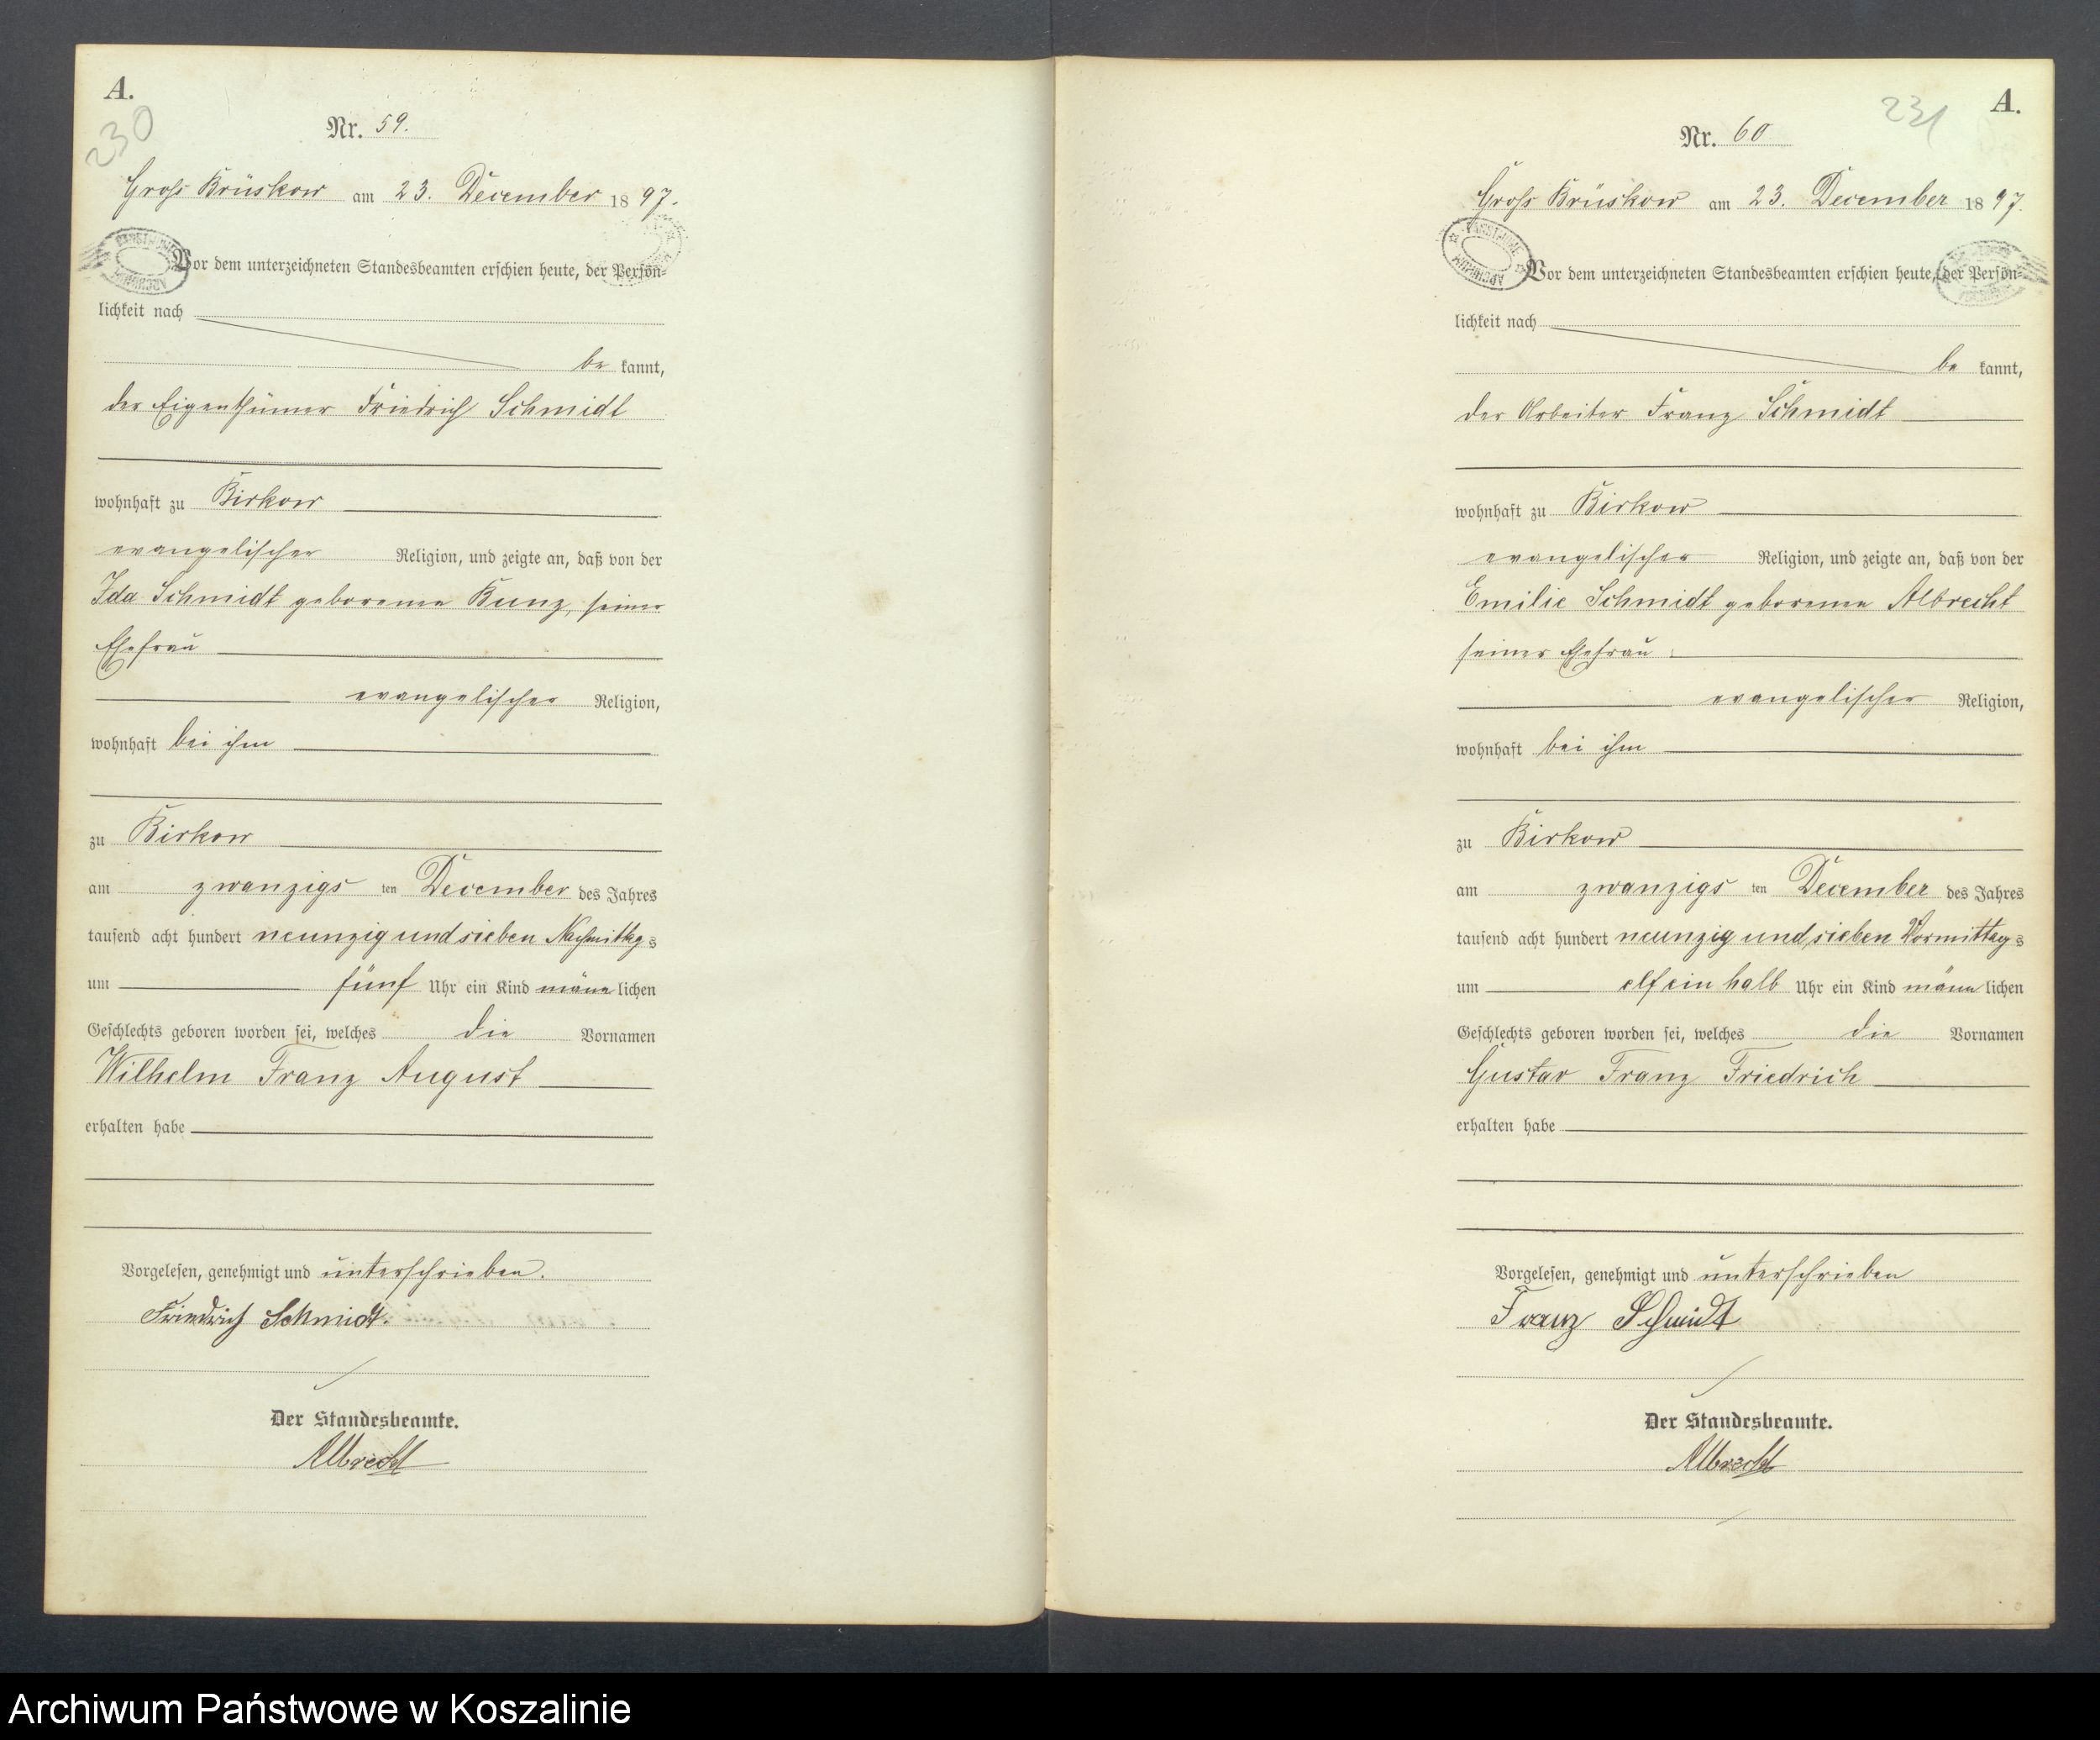 A.
230
Nr. 59.
Groß Brüskow am 23. December 1897.
Vor dem unterzeichneten Standesbeamten erschien heute, der Persön-
lichkeit nach
be kannt,
der Eigenthümer Friedrich Schmidt
wohnhaft zu Birkow
evangelischer Religion, und zeigte an, daß von der
Ida Schmidt geborenen Kunz, seiner
Ehefrau
evangelischer Religion,
wohnhaft bei ihm
zu Birkow
am zwanzigs ten December des Jahres
tausend acht hundert neunzig und sieben Nachmittags
um fünf Uhr ein Kind männlichen
Geschlechts geboren worden sei, welches die Vornamen
Wilhelm Franz August
erhalten habe
Vorgelesen, genehmigt und unterschrieben.
Friedrich Schmidt.
Der Standesbeamte.
Albrecht
A.
231
Nr. 60
Groß Brüskow am 23. December 1897.
PAŃSTWOWE ARCHIWUM
Vor dem unterzeichneten Standesbeamten erschien heute, der Persön-
lichkeit nach
be kannt,
der Arbeiter Franz Schmidt
wohnhaft zu Birkow
evangelischer Religion, und zeigte an, daß von der
Emilie Schmidt geborenen Albrecht
seiner Ehefrau
evangelischer Religion,
wohnhaft bei ihm
zu Birkow
am zwanzigs ten December des Jahres
tausend acht hundert neunzig und sieben Vormittags
um elf ein halb Uhr ein Kind männlichen
Geschlechts geboren worden sei, welches die Vornamen
Gustav Franz Friedrich
erhalten habe
Vorgelesen, genehmigt und unterschrieben
Franz Schmidt
Der Standesbeamte.
Albrecht
Archiwum Państwowe w Koszalinie